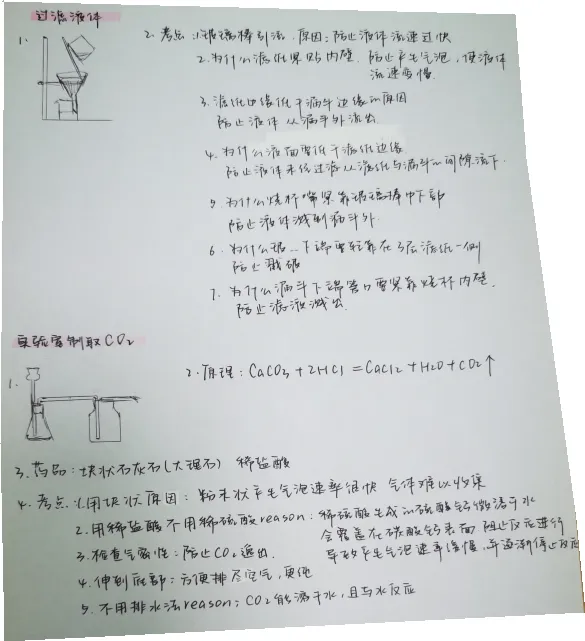 过滤液体
1.
2. 考点: 1.玻璃棒引流. 原因: 防止液体流速过快
2. 为什么滤纸紧贴内壁. 防止产生气泡, 使液体
流速变慢.
3. 滤纸边缘低于漏斗边缘的原因
防止液体从漏斗外流出.
4. 为什么液面要低于滤纸边缘
防止液体未经过滤从滤纸与漏斗的间隙流下.
5. 为什么烧杯嘴紧靠玻璃棒中下部
防止液体溅到漏斗外.
6. 为什么玻...下端要轻靠在3层滤纸一侧
防止戳破
7. 为什么漏斗下端管口要紧靠烧杯内壁.
防止滤液溅出.
实验室制取CO2
1.
2. 原理: CaCO3 + 2HCl = CaCl2 + H2O + CO2↑
3. 药品: 块状石灰石(大理石) 稀盐酸
4. 考点: 1.用块状原因: 粉末状产生气泡速率很快 气体难以收集
2. 用稀盐酸不用稀硫酸reason: 稀硫酸生成的硫酸钙微溶于水
会覆盖在碳酸钙表面 阻止反应进行
导致产生气泡速率缓慢, 并逐渐停止反应
3. 检查气密性: 防止CO2逸出.
4. 伸到底部: 方便排尽空气,更纯
5. 不用排水法reason: CO2能溶于水, 且与水反应